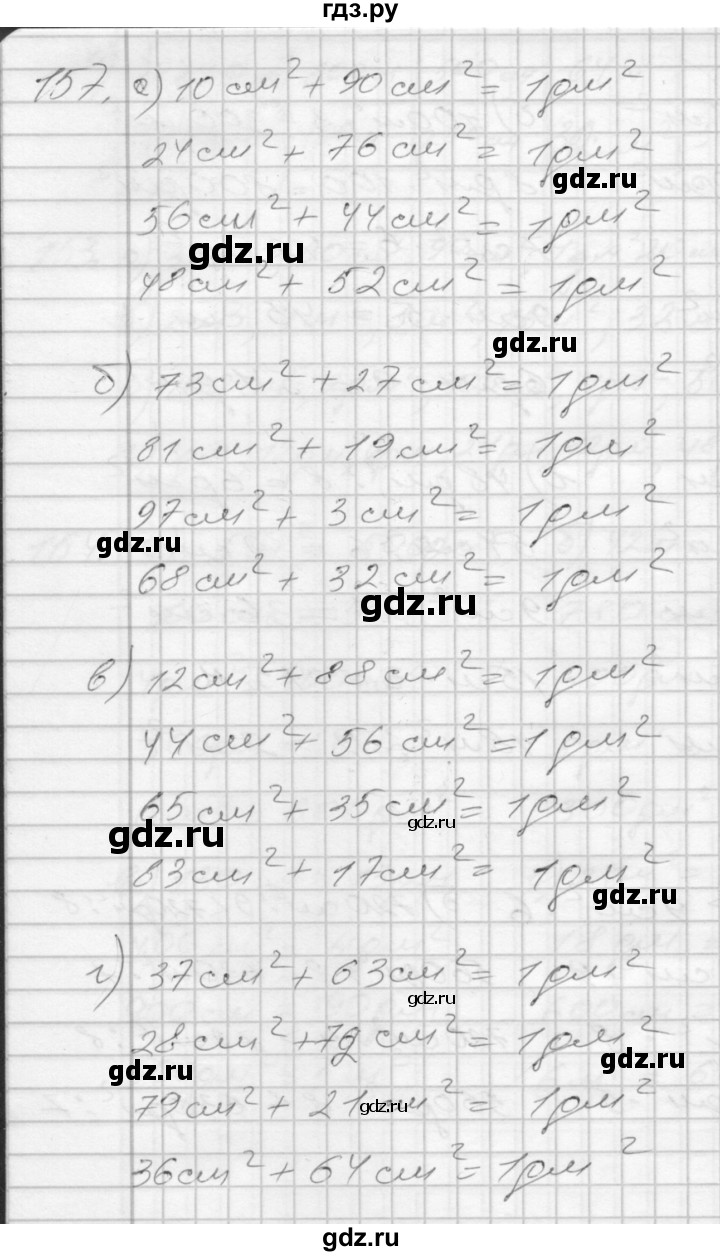 гдз.ру
157. а) 10 см² + 90 см² = 1 дм²
24 см² + 76 см² = 1 дм²
gdz.ru
56 см² + 44 см² = 1 дм²
gdz.ru
48 см² + 52 см² = 1 дм²
gdz.ru
б) 73 см² + 27 см² = 1 дм²
81 см² + 19 см² = 1 дм²
97 см² + 3 см² = 1 дм²
gdz.ru
68 см² + 32 см² = 1 дм²
gdz.ru
в) 12 см² + 88 см² = 1 дм²
44 см² + 56 см² = 1 дм²
65 см² + 35 см² = 1 дм²
gdz.ru
gdz.ru
83 см² + 17 см² = 1 дм²
gdz.ru
г) 37 см² + 63 см² = 1 дм²
gdz.ru
28 см² + 72 см² = 1 дм²
gdz.ru
gdz.ru
79 см² + 21 см² = 1 дм²
gdz.ru
36 см² + 64 см² = 1 дм²
gdz.ru